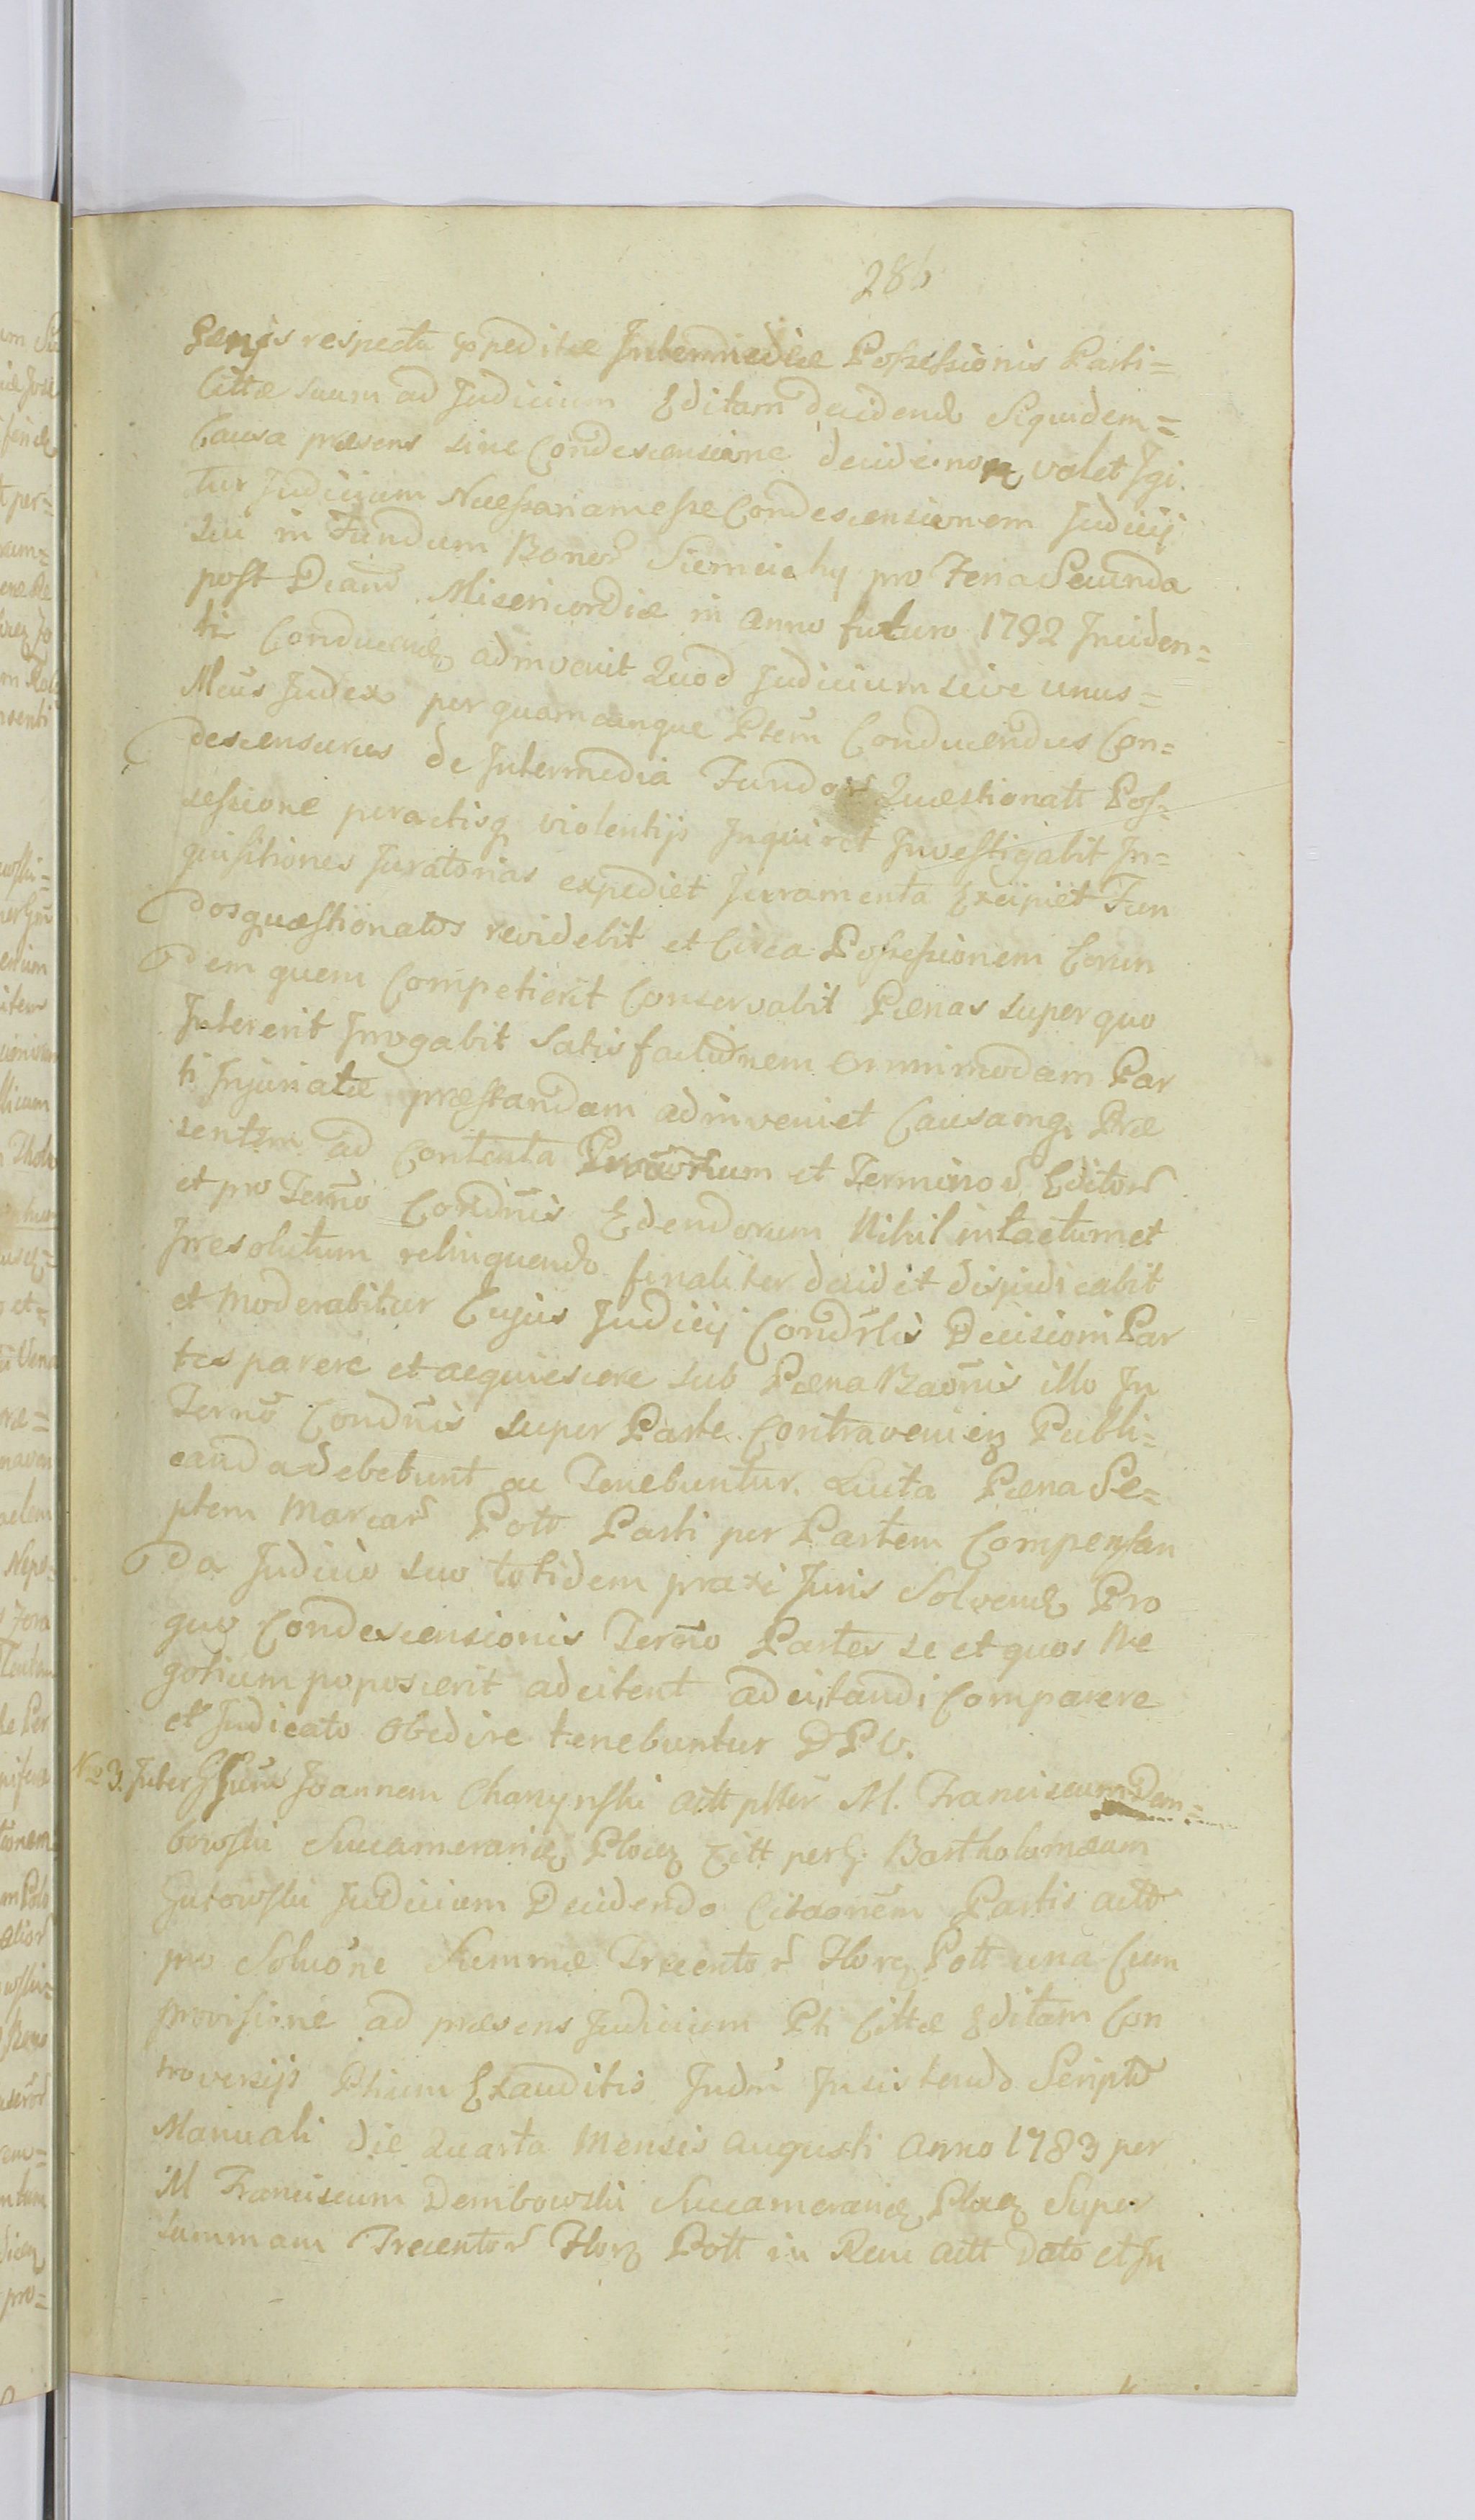 286
respectu expeditæ Intermediæ Possessionis Parti=
Cittæ suum ad Judicium Editam decidend Siquidem=
Causa præsens sine Condescensione decidi non valet Igi
tur Judicium Necessariam esse Condescensionem Judicij
sui in Fundum Bonor pro Feria Secunda
post Dcam Misericordiæ in Anno futuro 1792 Inciden=
ti adinvenit Quod Judicium sive unus=
Judex per quamcunque Ptem Conducendus Con=
descensurus de Intermedia Fundor Quæstionatt Pos=
sessione peractisq violentijs Inquiret Investigabit In=
quisitiones Juratorias expediet Juramenta Excipiet Fun
dos quæstionatos revidebit et Circa Possessionem Eorun
dem quem Competierit Conservabit Pænas super quo
Intererit Irrogabit Satisfactionem omnimodam Par
ti Injuriatæ præstandam adinveniet Causamq Præ
sentem ad Contenta et Terminor Editor
et pro Termo Condnis Edendorum Nihil intactum et
Irresolutum relinquendo finaliter decidet dijudicabit
et Moderabitur Cujus Judicij Condrlis Decisioni Par
tes parere et acquiescere sub Pæna Baonis illo In
Termo Condnis super Parte Contravenien Publi=
canda debebunt ac Tenebuntur. Luita Pæna Se=
ptem Marcar Poll Parti per Partem Compensan
da Judicio suo totidem praxi Juris Solvend Pro
quo Condescensionis Termo Partes se et quos Ne
gotium poposcerit adcitent adcitandi Comparere
et Judicato Obedire tenebuntur DPV.
Nro 3. Inter Joannem Chanynski Actt M. Franciscum Dem=
bowski Succamerarid Plocen Citt per G. Bartholomæum
Gutowski Judicium Decidendo Citaonem Partis actt
pro Soluone Summæ Trecentor Flor Poll una Cum
provisione ad præsens Judicium Pti Cittæ Editam Con
troversijs Ptium Exauditis Judm Insistendo Scripto
Manuali die Quarta Mensis Augusti Anno 1783 per
M Franciscum Dembowski Succamerarid Plocen Super
summam Trecentor Flor Poll in Rem actt Dato et In